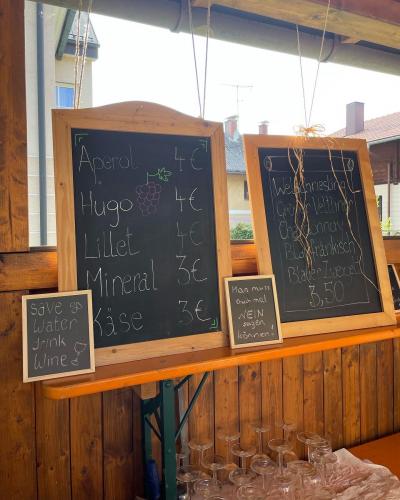 Aperol 4€
Hugo 4€
Lillet 4€
Mineral 3€
Käse 3€
Welschriesling
Grüner Veltliner
Chardonnay
Blaufränkisch
Blauer Zweigelt
3,50
save
Water
drink
Wine
Man muss
auch mal
NEIN
sagen
können!